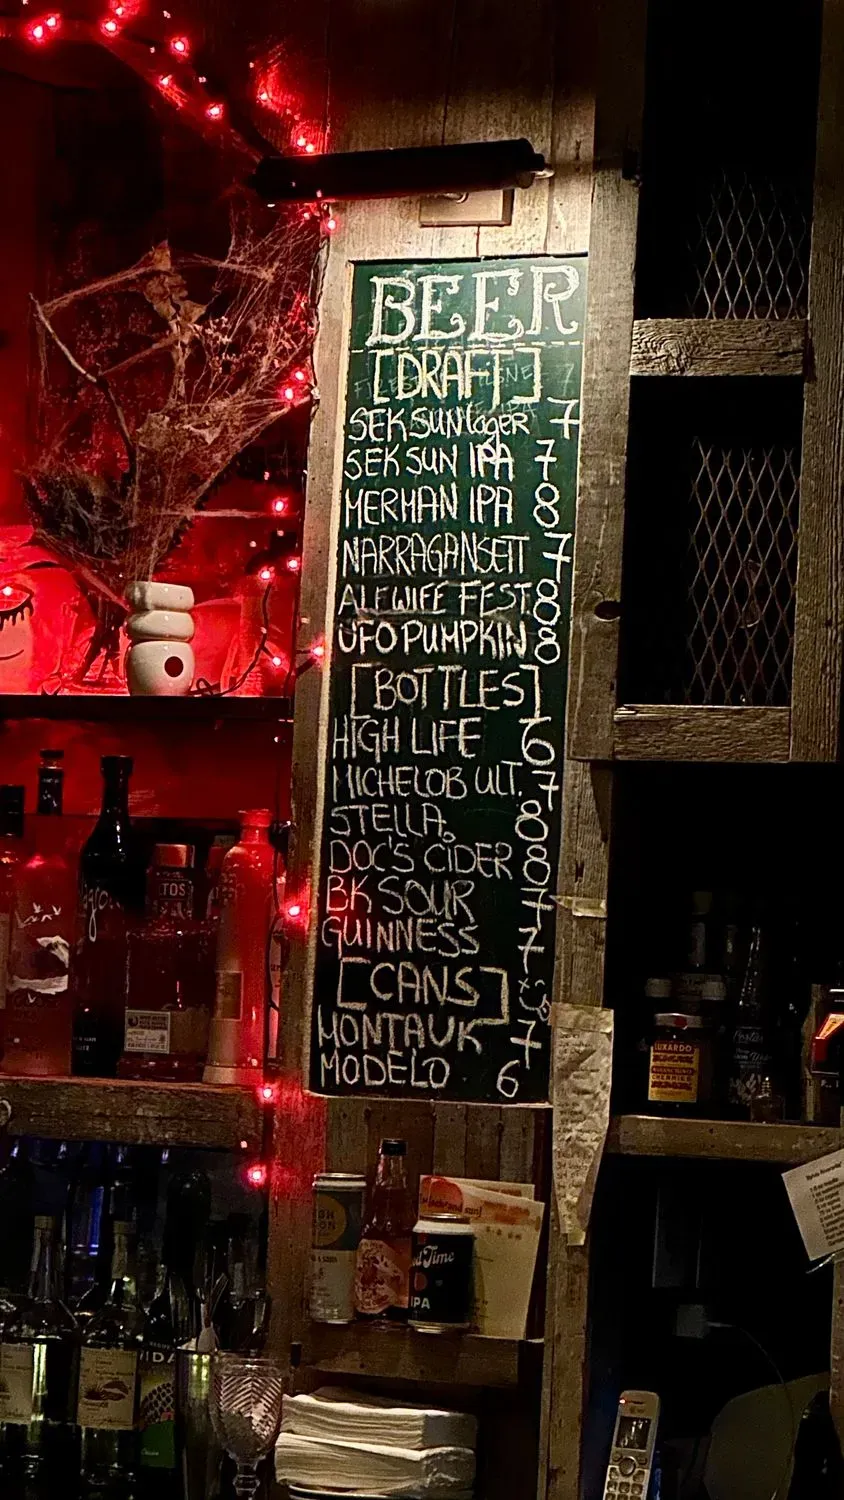 BEER
[DRAFT]
SEKSUN lager 7
SEKSUN IPA 7
MERMAN IPA 8
NARRAGANSETT 7
ALEWIFE FEST. 8
UFO PUMPKIN 8
[BOTTLES]
HIGH LIFE 6
MICHELOB ULT. 7
STELLA 8
DOC'S CIDER 8
BK SOUR 7
GUINNESS 7
[CANS]
MONTAUK 7
MODELO 6
LUXARDO
TOS
Time
IPA